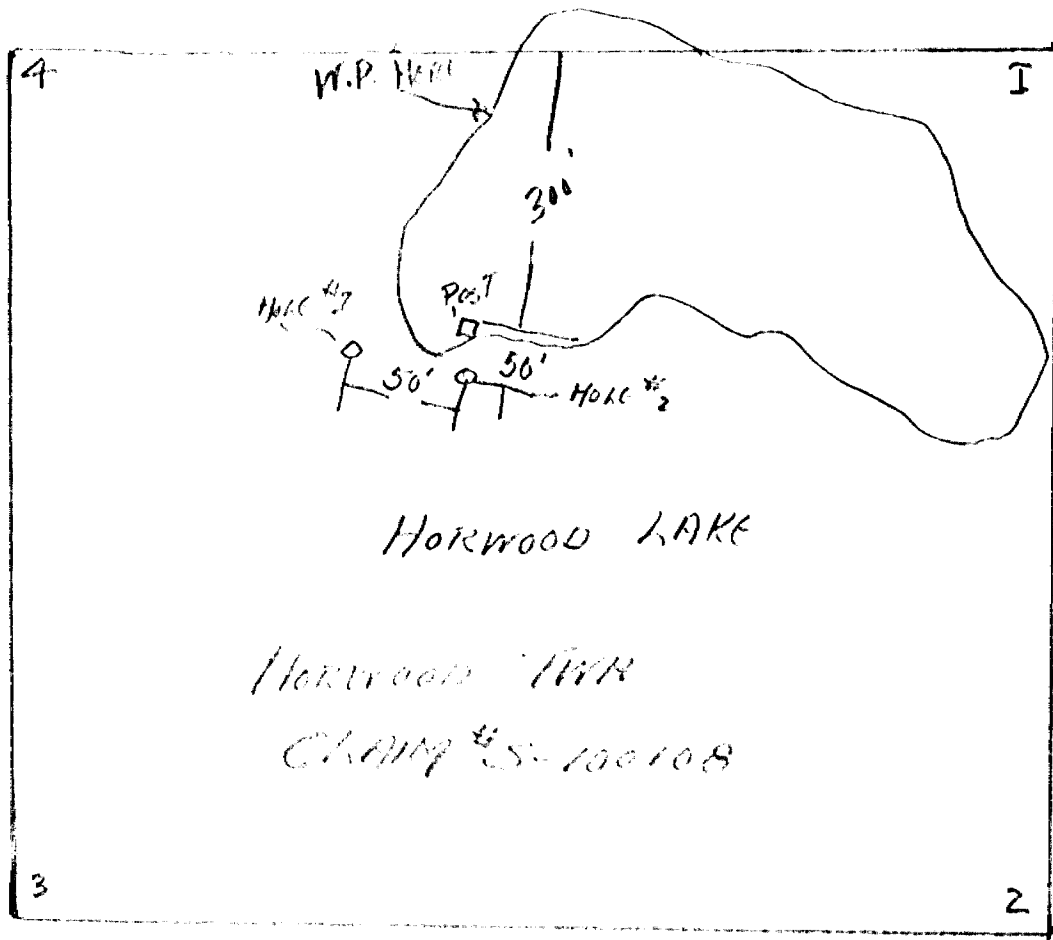 4
I
W.P.
300'
POST
HOLE #
50'
50'
HOLE #2
HORWOOD LAKE
HORWOOD TWP
CLAIM # S-100108
3
2